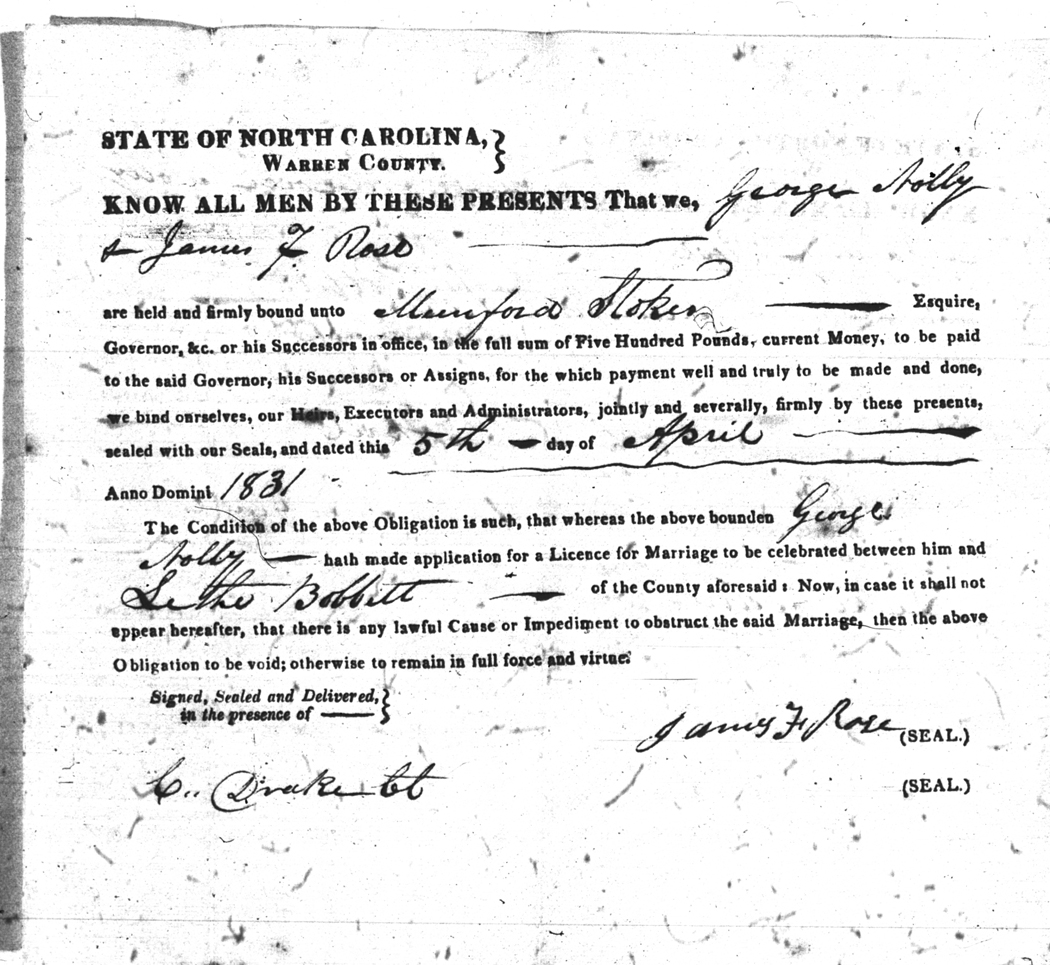 STATE OF NORTH CAROLINA,
WARREN COUNTY.
KNOW ALL MEN BY THESE PRESENTS That we, George Nolly
& James F Rose
are held and firmly bound unto Munford Stokes Esquire,
Governor, &c. or his Successors in office, in the full sum of Five Hundred Pounds, current Money, to be paid
to the said Governor, his Successors or Assigns, for the which payment well and truly to be made and done,
we bind ourselves, our Heirs, Executors and Administrators, jointly and severally, firmly by these presents,
sealed with our Seals, and dated this 5th day of April
Anno Domini 1831
The Condition of the above Obligation is such, that whereas the above bounden George
Nolly hath made application for a Licence for Marriage to be celebrated between him and
Lethe Bobbitt of the County aforesaid: Now, in case it shall not
appear hereafter, that there is any lawful Cause or Impediment to obstruct the said Marriage, then the above
Obligation to be void; otherwise to remain in full force and virtue.
Signed, Sealed and Delivered,
in the presence of
James F Rose (SEAL.)
C. Drake Ct
(SEAL.)